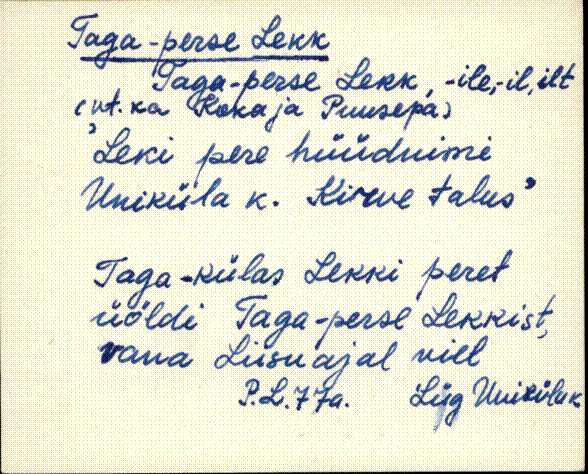 Taga-perse Lekk
Taga-perse Lekk, -ile, -il, ilt
(vt. ka Koka ja Puusepa)
"Leki pere hüüdnimi
Uniküla k. Kirve talus"
Taga-külas Lekki peret
üöldi Taga-perse Lekkist,
vana Liisu ajal viel
P.L. 77a. Lüg Uniküla k